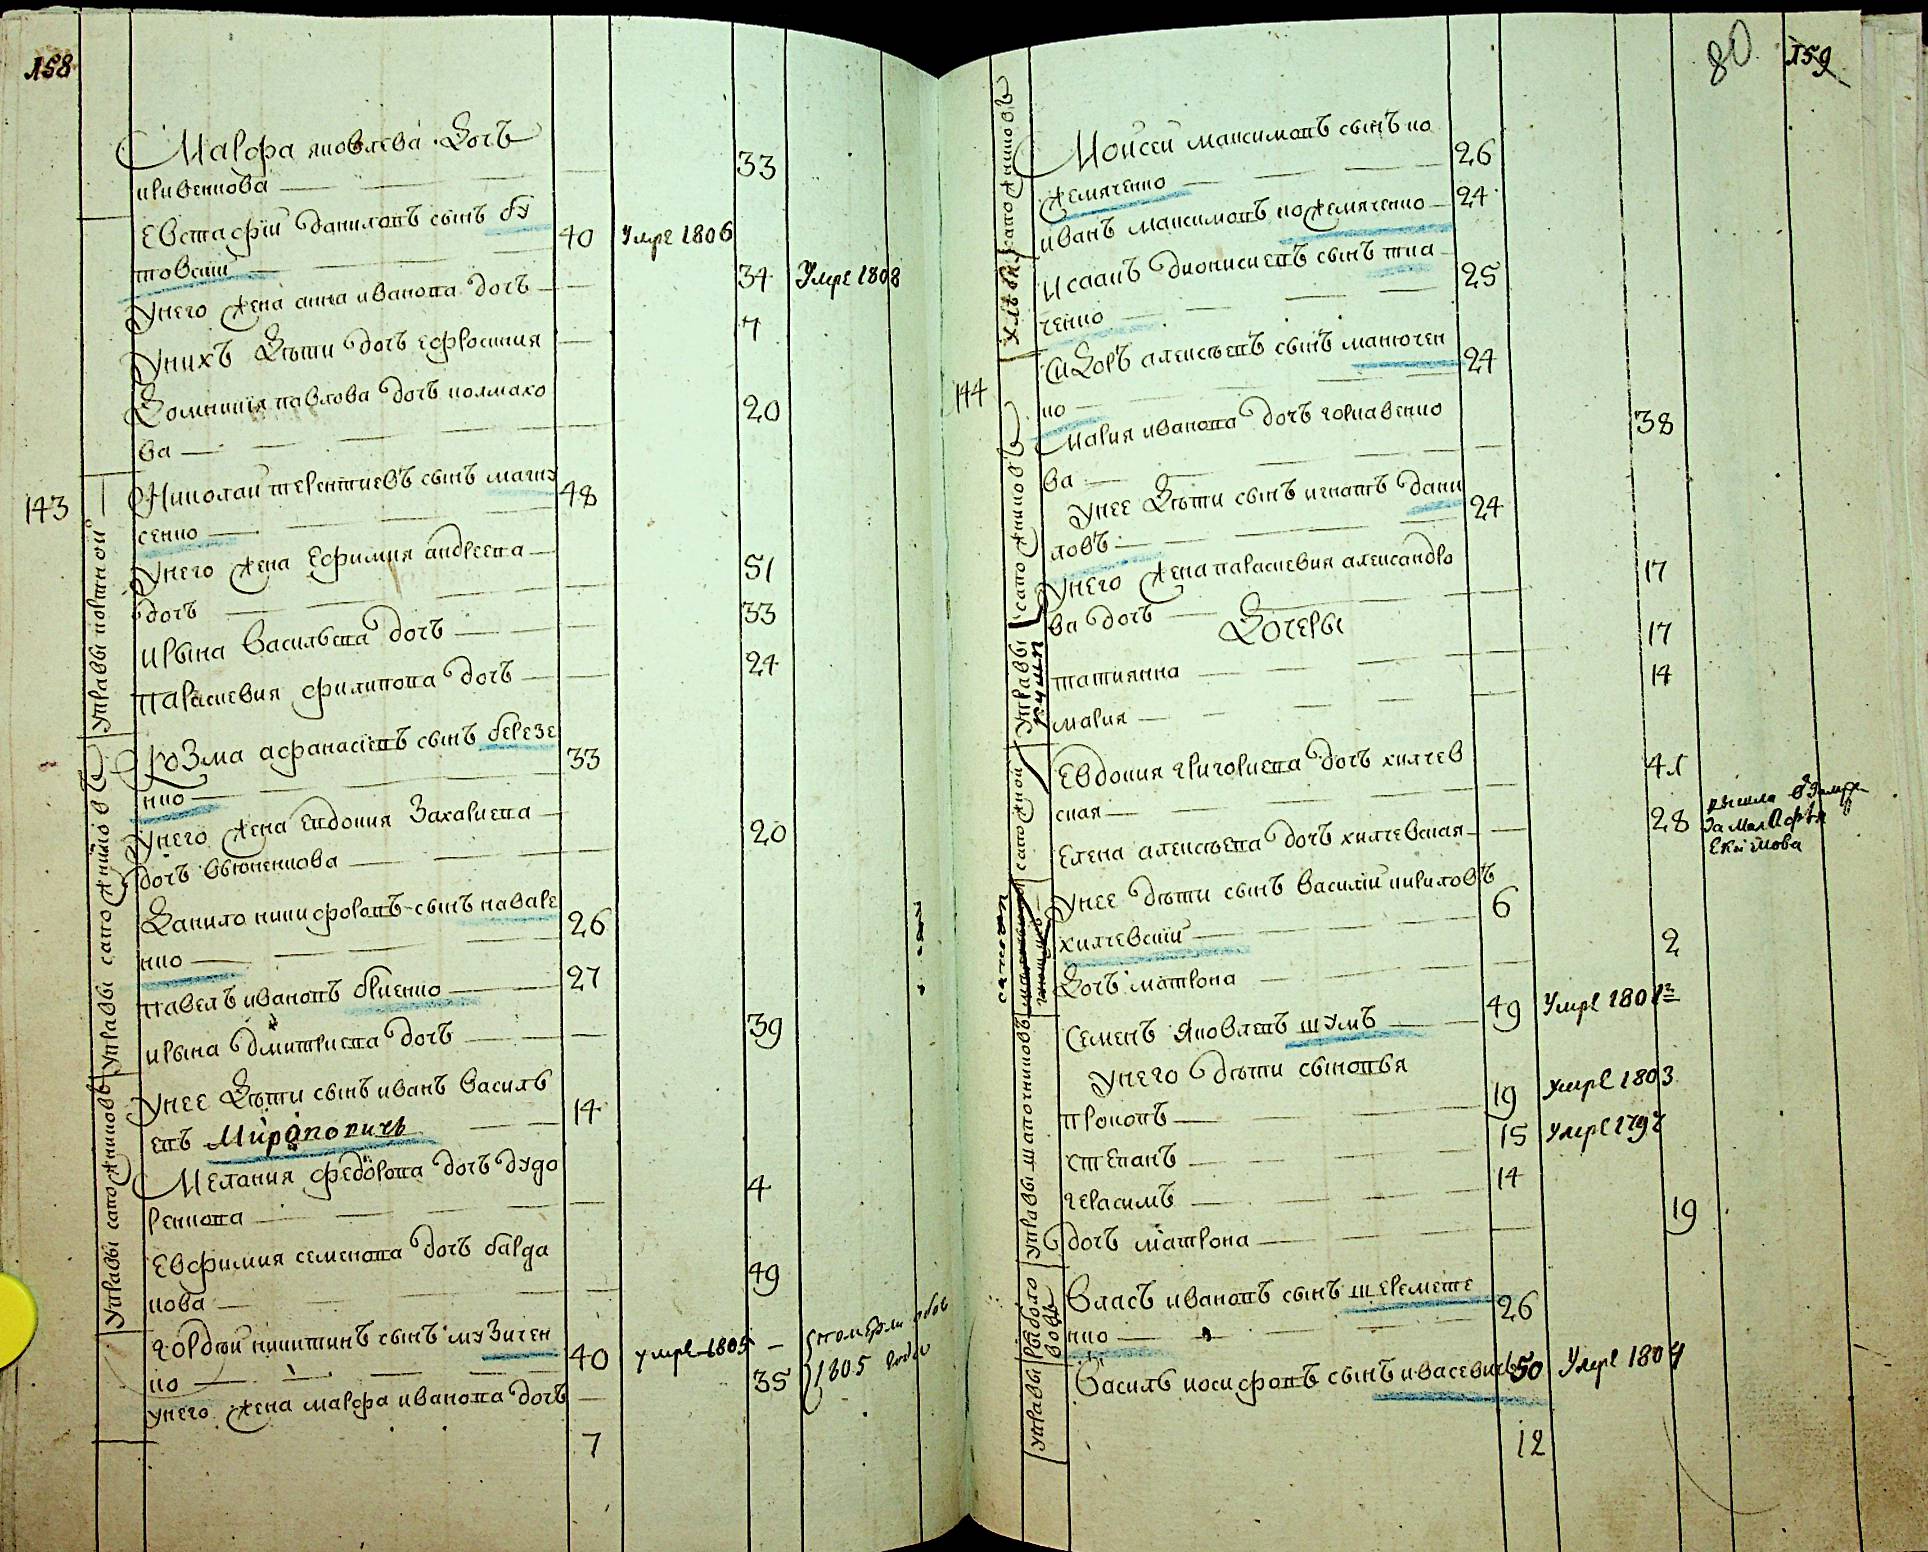 158
Марфа яковлева дочь
кривенкова 33
Евстафій даниловъ сынъ бу
товскій 40 умре 1806
унего жена анна иванова дочь 34 умре 1808
унихъ дѣти дочь ефросиния 7
Домникія павлова дочь колмако
ва 20
143
управы портной
Николай терентиевъ сынъ магну
сенко 48
унего жена Ефимия андреева
дочь 51
ирына васильева дочь 33
параскевия филипова дочь 24
управы сапожниковъ
Козма афанасіевъ сынъ березе
нко 33
унего жена евдокия Захариева
дочь вьюненкова 20
Данило никифоровъ сынъ наваре
нко 26
павелъ ивановъ бриенко 27
управы сапожниковъ
ирына дмитриева дочь 39
унее дѣти сынъ иванъ василь
евъ Мироновичь 14
Мелания федорова дочь дудо
ренкова 4
Евфимия семенова дочь барда
кова 49
гордѣй никитинъ сынъ музичен
ко 40 умре 1805
унего жена марфа иванова дочь 35
1805 года
7
80 159
сапожниковъ
Моисей максимовъ сынъ ко
жемяченко 26
иванъ максимовъ кожемяченко 24
Исаакъ дионисиевъ сынъ тка
ченко 25
144
Сидоръ алексѣевъ сынъ манючен
ко 24
управы сапожниковъ
мария иванова дочь горкавенко
ва 38
унее дѣти сынъ игнатъ дани
ловъ 24
унего жена параскевия александро
ва дочь 17
Дочеры
татиянна 17
мария 14
сапожной
Евдокия григориева дочь хилчев
ская 41
Елена алексѣева дочь хилчевская 28
вышла в замуже
за
Екимова
унее дѣти сынъ василій кириловъ
хилчевскій 6
Дочь матрона 2
управы шапочниковъ
Семенъ яковлевъ шумъ 49 умре 180
унего дѣти сыновья
прокопъ 19 умре 1803
степанъ 15 умре 1797
герасимъ 14
дочь матрона 19
управы рыболо
вовъ
Власъ ивановъ сынъ шеремете
нко 26
Василь иосифовъ сынъ ивасевичь 50 умре 1807
12